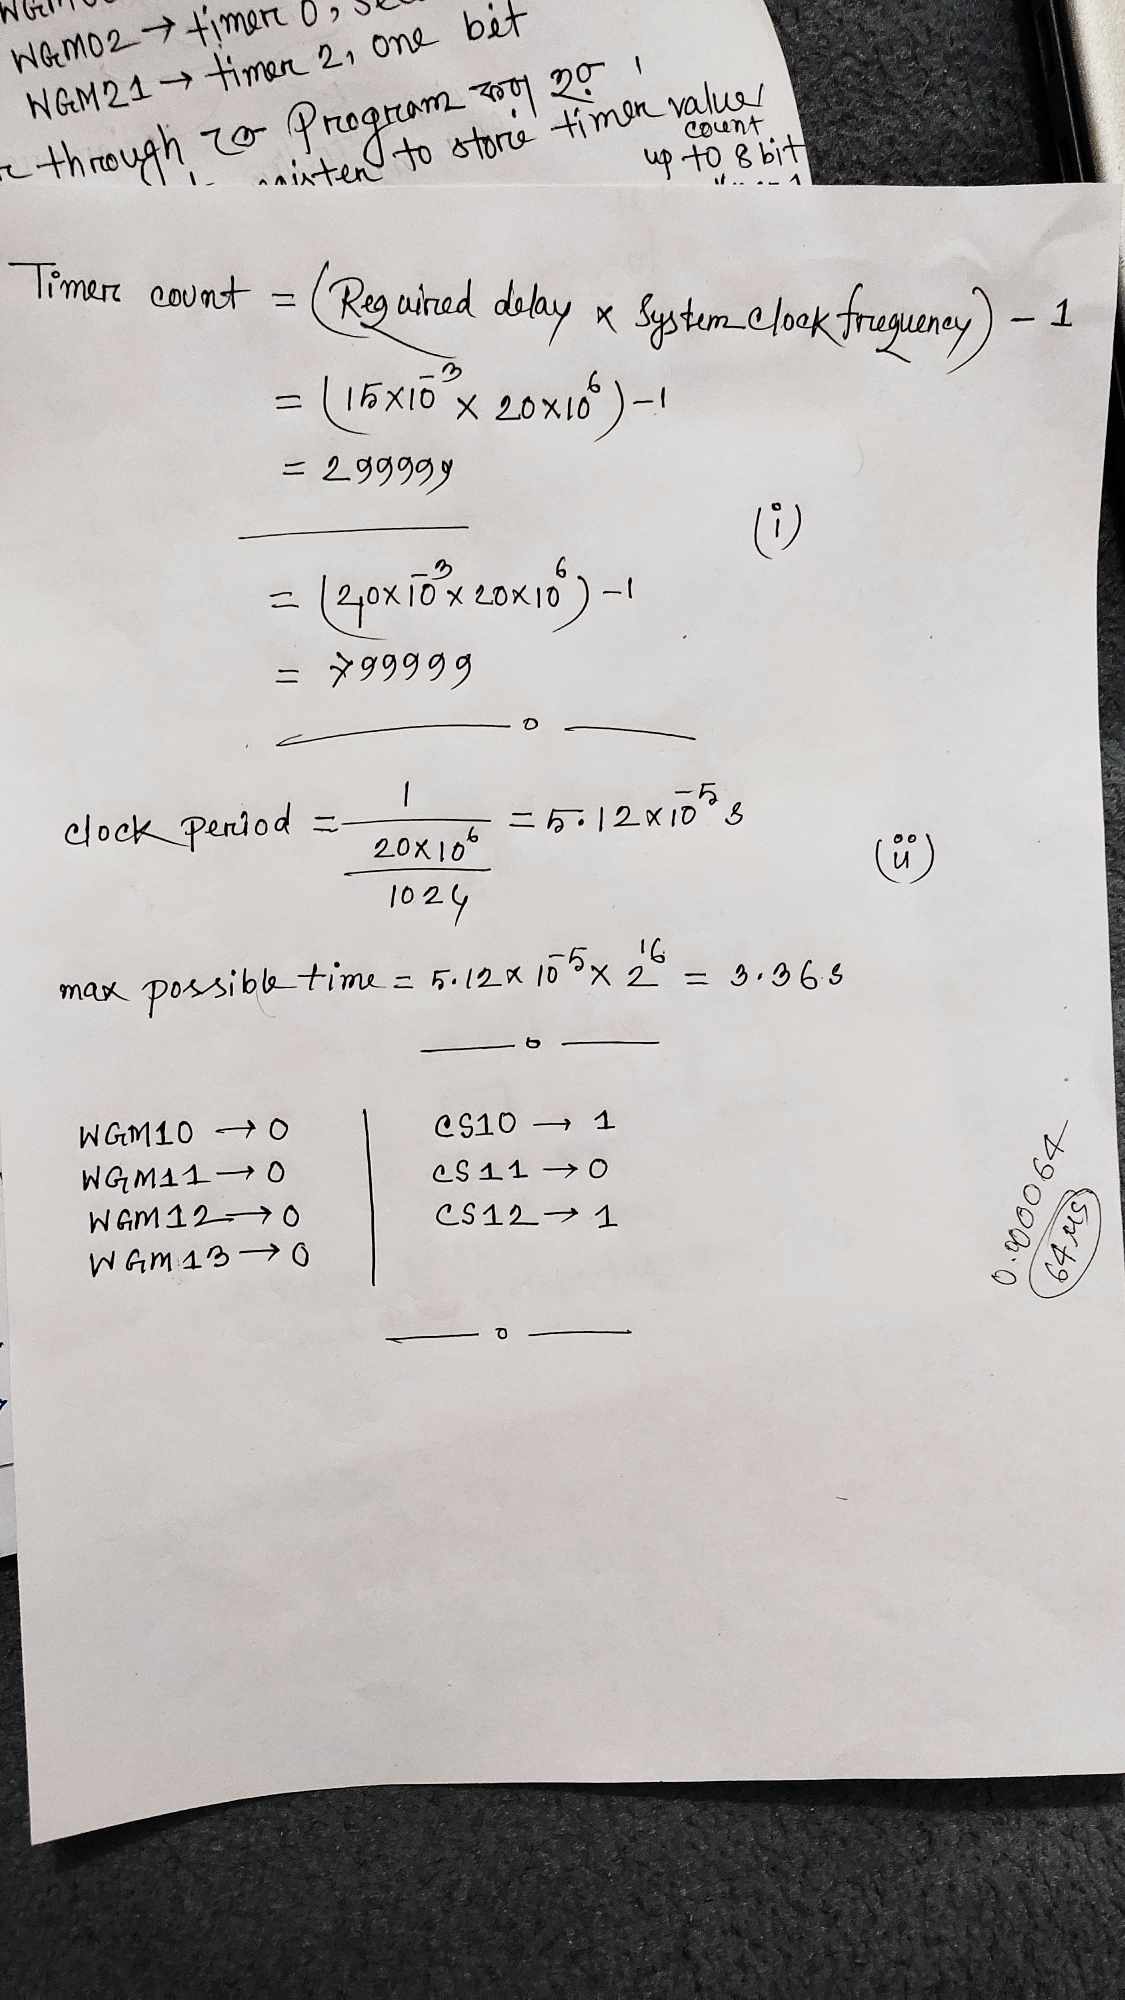 WGM02 → timer 0,
WGM21 → timer 2, one bit
through এ Program করা হয় ।
to store timer value
count
up to 8 bit
Timer count = (Required delay × System clock frequency) - 1
= (15×10⁻³ × 20×10⁶) - 1
= 299999
(i)
= (40×10⁻³ × 20×10⁶) - 1
= 799999
clock period = 1 / (20×10⁶ / 1024) = 5.12×10⁻⁵ s
(ii)
max possible time = 5.12 × 10⁻⁵ × 2¹⁶ = 3.36 s
WGM10 → 0 | CS10 → 1
WGM11 → 0 | CS11 → 0
WGM12 → 0 | CS12 → 1
WGM13 → 0
0.000064
64 μs